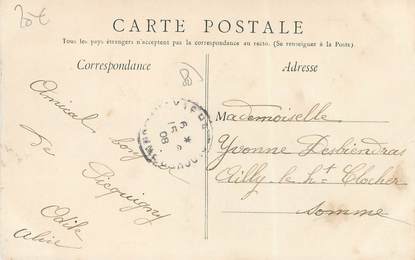 20€
CARTE POSTALE
Tous les pays étrangers n'acceptent pas la correspondance au recto. (Se renseigner à la Poste).
Correspondance
Adresse
80
Amical bonjour
de Picquigny
Odile
Mademoiselle
Yvonne Desbiendras
Ailly-le-ht-Clocher
Somme